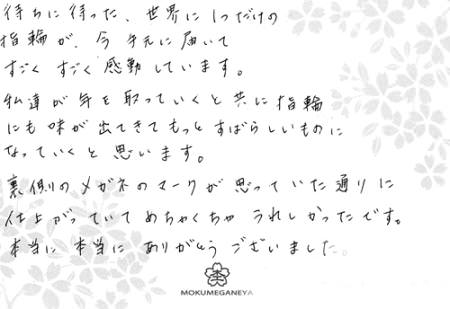 待ちに待った、世界に1つだけの
指輪が、今手元に届いて
すごくすごく感動しています。
私達が年を取っていくと共に指輪
にも味が出てきてもっとすばらしいものに
なっていくと思います。
裏側のメガネのマークが思っていた通りに
仕上がっていてめちゃくちゃうれしかったです。
本当に本当にありがとうございました。
MOKUMEGANEYA